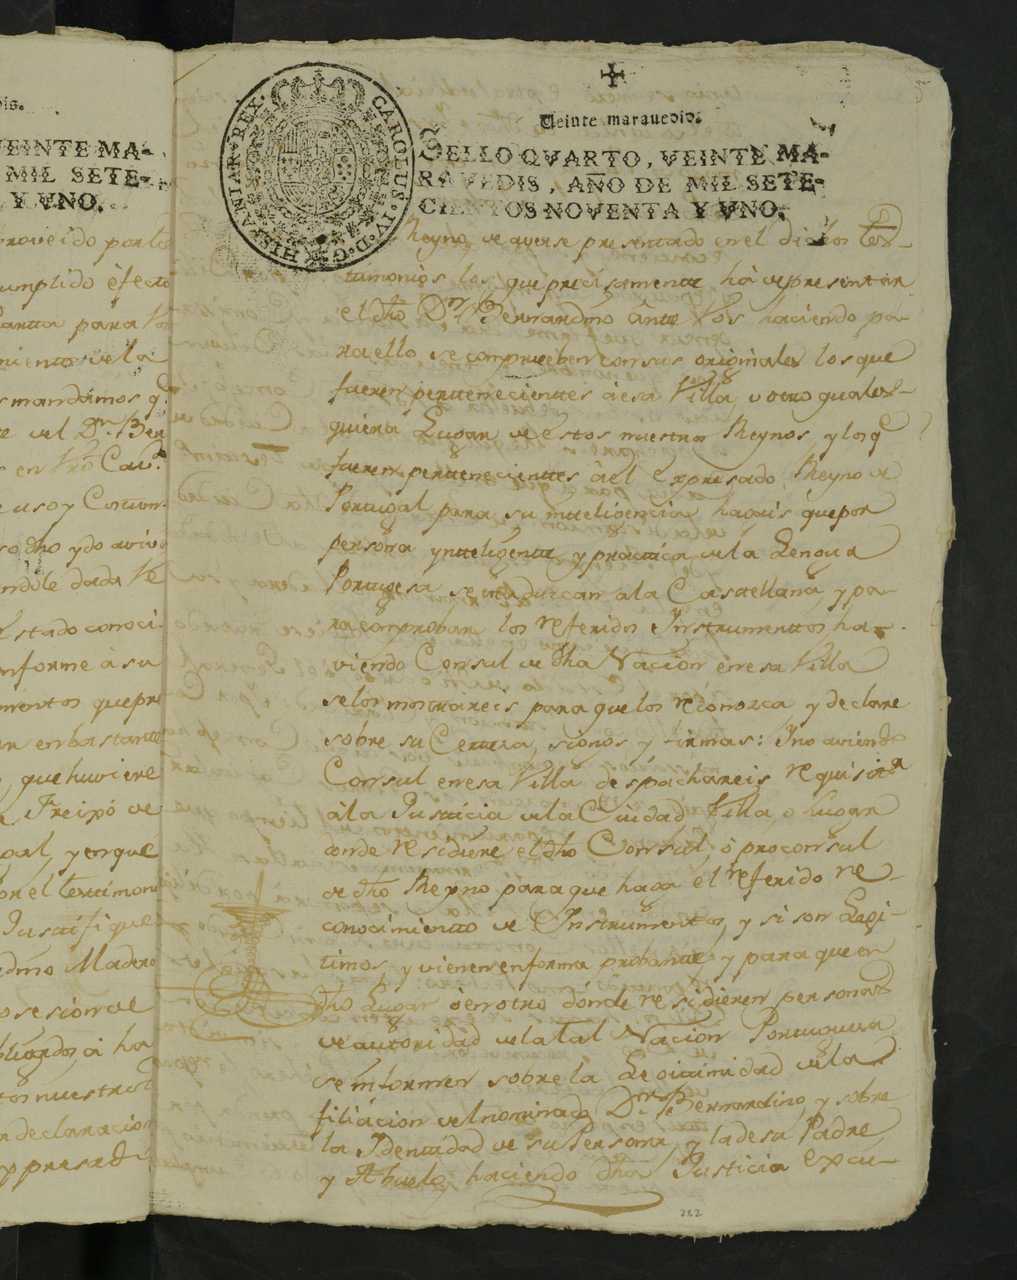 dis.
VEINTE MA-
MIL SETE-
Y VNO.
roveido por los
umplido efecto
miento de la
s mandamos q.
e del Dn. Ber
en Vro Cav.do
e uso y Costum-
ndole dada
Estado conoci-
nforme à su
mentos que pre
n en bastante
que huviere
Freixó de
y en que
or el testimoni
Justifique
dino Madero
osesion de
bligados à ha
tos nuestros
declaracion
expresad
CAROLUS·IV·D·G·HISPANIAR·REX·
Veinte maravedis.
SELLO QVARTO, VEINTE MA-
RAVEDIS, AÑO DE MIL SETE-
CIENTOS NOVENTA Y VNO.
Reyno, de averse presentado en el dichos tes-
timonios los que precisamente hà de presentar
el dho Dn. Bernardino ante Vos haciendo pa-
ra ello se comprueben con sus originales los que
fueren pertenecientes à esa Villa, u otro quales-
quiera Lugar de estos nuestros Reynos, y los q.
fueren pertenecientes àel expresado Reyno de
Portugal para su inteligencia hagais que por
persona ynteligente y practica de la Lengua
Portugesa se traduzcan ala Castellana, y pa-
ra comprobar los referidos Instrumentos, ha-
viendo Consul de dha Nacion en esa Villa
selos mostrareis para que los reconozca y declare
sobre su Certeza, signos y firmas: Y no aviendo
Consul en esa Villa despachareis requisita
à la Justicia de la Ciudad Villa, o lugar
donde residiere el dho Consul, ò proconsul
de dho Reyno para que haga el referido re-
conocimiento de Instrumentos, y si son Legi-
timos, y vienen en forma probante y para que en
dho Lugar ò en otro dónde residieren personas
de autoridad de la tal Nacion Portuguesa
se informen sobre la Legitimidad de la
filiacion del nominado Dn. Bernardino, y sobre
la Identidad de su Persona, y la de sa Padre,
y Abuelo, haciendo dha Justicia excu-
222